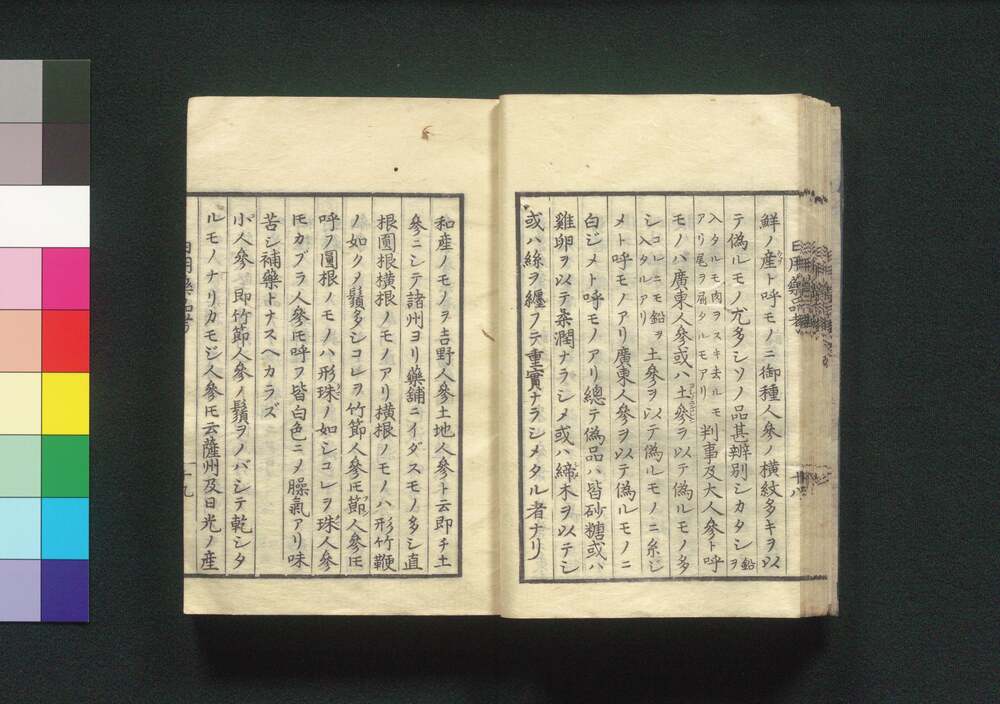 鮮ノ産ト呼モノニ御種人參ノ横紋多キヲ以
テ偽ルモノ尤多シソノ品甚辨別シカタシ鉛ヲ
入タルモ肉ヲスキ去ルモ
アリ尾ヲ扁タルモアリ
判事及大人參ト呼
モノハ廣東人參或ハ土參ヲ以テ偽ルモノ多
シコレニモ鉛ヲ
入タルアリ
土參ヲ以テ偽ルモノニ糸ジ
メト呼モノアリ廣東人參ヲ以テ偽ルモノニ
白ジメト呼モノアリ總テ偽品ハ皆砂糖或ハ
雞卵ヲ以テ柔潤ナラシメ或ハ締木ヲ以テシ
或ハ絲ヲ纏フテ重實ナラシメタル者ナリ
日用藥品考
十八
和産ノモノヲ吉野人參土地人參ト云即チ土
參ニシテ諸州ヨリ藥舗ニイダスモノ多シ直
根圓根横根ノモノアリ横根ノモノハ形竹鞭
ノ如ク鬚多シコレヲ竹節人參𪜈節人參𪜈
呼フ圓根ノモノハ形珠ノ如シコレヲ珠人參
𪜈カブラ人參𪜈呼フ皆白色ニメ臊氣アリ味
苦シ補藥トナスヘカラズ
小人參 即竹節人參ノ鬚ヲノバシテ乾シタ
ルモノナリカモジ人參𪜈云薩州及日光ノ産
日用藥品考
十九